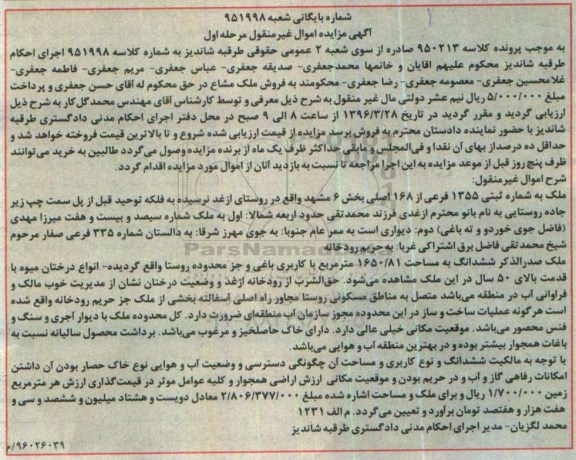 شماره بایگانی شعبه ۹۵۱۹۹۸
آگهی مزایده اموال غیرمنقول مرحله اول
به موجب پرونده کلاسه ۹۵۰۲۱۳ صادره از سوی شعبه ۲ عمومی حقوقی طرقبه شاندیز به شماره کلاسه ۹۵۱۹۹۸ اجرای احکام
طرقبه شاندیز محکوم علیهم اقایان و خانمها محمدجعفری- صدیقه جعفری- عباس جعفری- مریم جعفری- فاطمه جعفری-
غلامحسین جعفری- معصومه جعفری- رضا جعفری- محکومند به فروش ملک مشاع در حق محکوم له آقای حسن جعفری و پرداخت
مبلغ ۵/۰۰۰/۰۰۰ ریال نیم عشر دولتی مال غیر منقول به شرح ذیل معرفی و توسط کارشناس اقای مهندس محمد گل کار به شرح ذیل
ارزیابی گردید و مقرر گردید در تاریخ ۱۳۹۶/۳/۲۸ از ساعت ۸ الی ۹ صبح در محل دفتر اجرای احکام مدنی دادگستری طرقبه
شاندیز با حضور نماینده دادستان محترم به فروش برسد مزایده از قیمت ارزیابی شده شروع و تا بالاترین قیمت فروخته خواهد شد و
حداقل ده درصداز بهای آن نقدا و فی المجلس و مابقی حداکثر ظرف یک ماه از برنده مزایده وصول می گردد طالبین به خرید می توانند
ظرف پنج روز قبل از موعد مزایده به این اجرا مراجعه تا نسبت به بازدید آنان از اموال مورد مزایده اقدام گردد.
شرح اموال غیرمنقول:
ملک به شماره ثبتی ۱۳۵۵ فرعی از ۱۶۸ اصلی بخش ۶ مشهد واقع در روستای ازغد نرسیده به فلکه توحید قبل از پل سمت چپ زیر
جاده روستایی به نام بانو محترم ازغدی فرزند محمدتقی حدود اربعه شمالا: اول به ملک شماره سیصد و بیست و هفت میرزا مهدی
(فاضل جوی خوردو و ته باغی) دوم: دیواری است به ممر عام جنوبا: به جوی مهرز شرقا: به دالستان شماره ۳۳۵ فرعی صفار مرحوم
شیخ محمدتقی فاضل برق اشتراکی غربا: به حریم رودخانه
ملک صدرالذکر ششدانگ به مساحت ۱۶۵۰/۸۱ مترمربع با کاربری باغی و جز محدوده روستا واقع گردیده- انواع درختان میوه با
قدمت بالای ۵۰ سال در این ملک مشاهده می شود. حق الشرب از رودخانه ازغد و وضعیت درختان نشان از مدیریت خوب مالک و
فراوانی آب در منطقه می باشد متصل به مناطق مسکونی روستا مجاور راه اصلی آسفالته بخشی از ملک جز حریم رودخانه واقع شده
است هرگونه عملیات ساخت و ساز در این محدوده مجوز سازمان آب منطقه ای ضرورت دارد. کل محدوده ملک با دیوار آجری و سنگ و
فنس محصور می باشد. موقعیت مکانی خیلی عالی دارد. دارای خاک حاصلخیز و مرغوب می باشد. برداشت محصول سالیانه نسبت به
باغات همجوار بیشتر بوده و در بهترین منطقه آب و هوایی می باشد.
با توجه به مالکیت ششدانگ و نوع کاربری و مساحت آن چگونگی دسترسی و وضعیت آب و هوایی نوع خاک حصار بودن آن داشتن
امکانات رفاهی گاز و آب و در حریم بودن و موقعیت مکانی ارزش اراضی همجوار و کلیه عوامل موثر در قیمت گذاری ارزش هر مترمربع
زمین ۱/۷۰۰/۰۰۰ ریال و برای ملک و مساحت اشاره شده مبلغ ۲/۸۰۶/۳۷۷/۰۰۰ معادل دویست و هشتاد میلیون و ششصد و سی و
هفت هزار و هفتصد تومان برآورد و تعیین می گردد. م الف ۱۲۳۱
محمد لگزیان- مدیر اجرای احکام مدنی دادگستری طرقبه شاندیز
۹۶۰۲۶۰۳۹/م